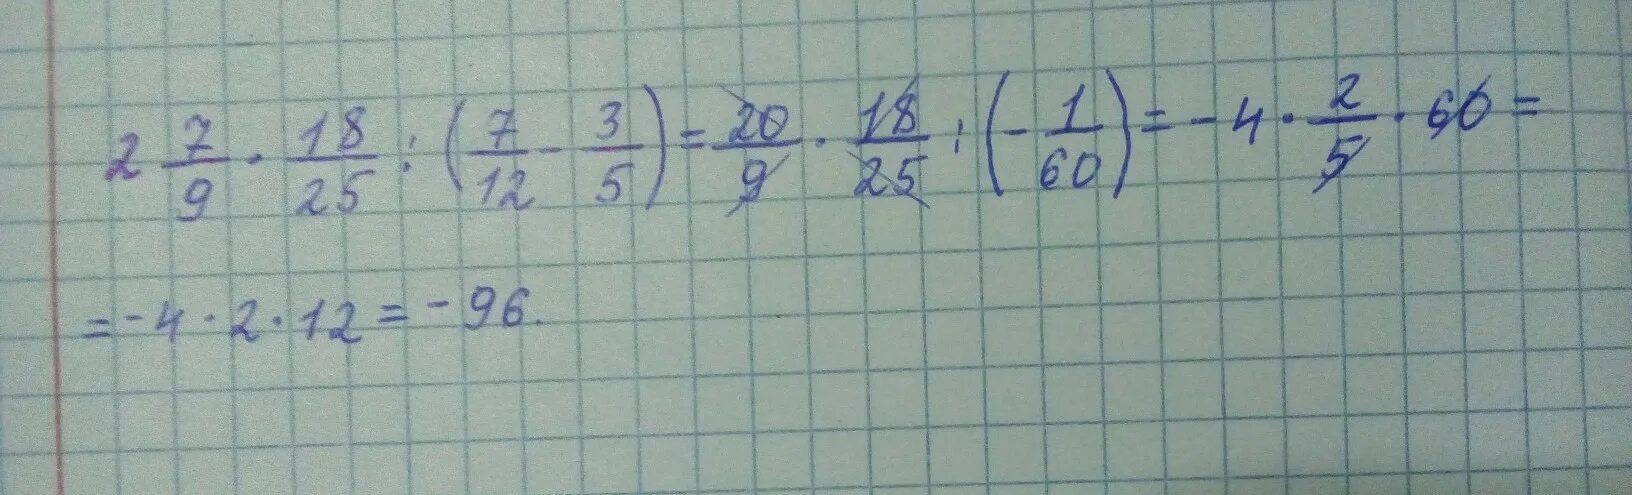 2 7/9 · 18/25 : (7/12 - 3/5) = 20/9 · 18/25 : (- 1/60) = - 4 · 2/5 · 60 =
= - 4 · 2 · 12 = - 96.